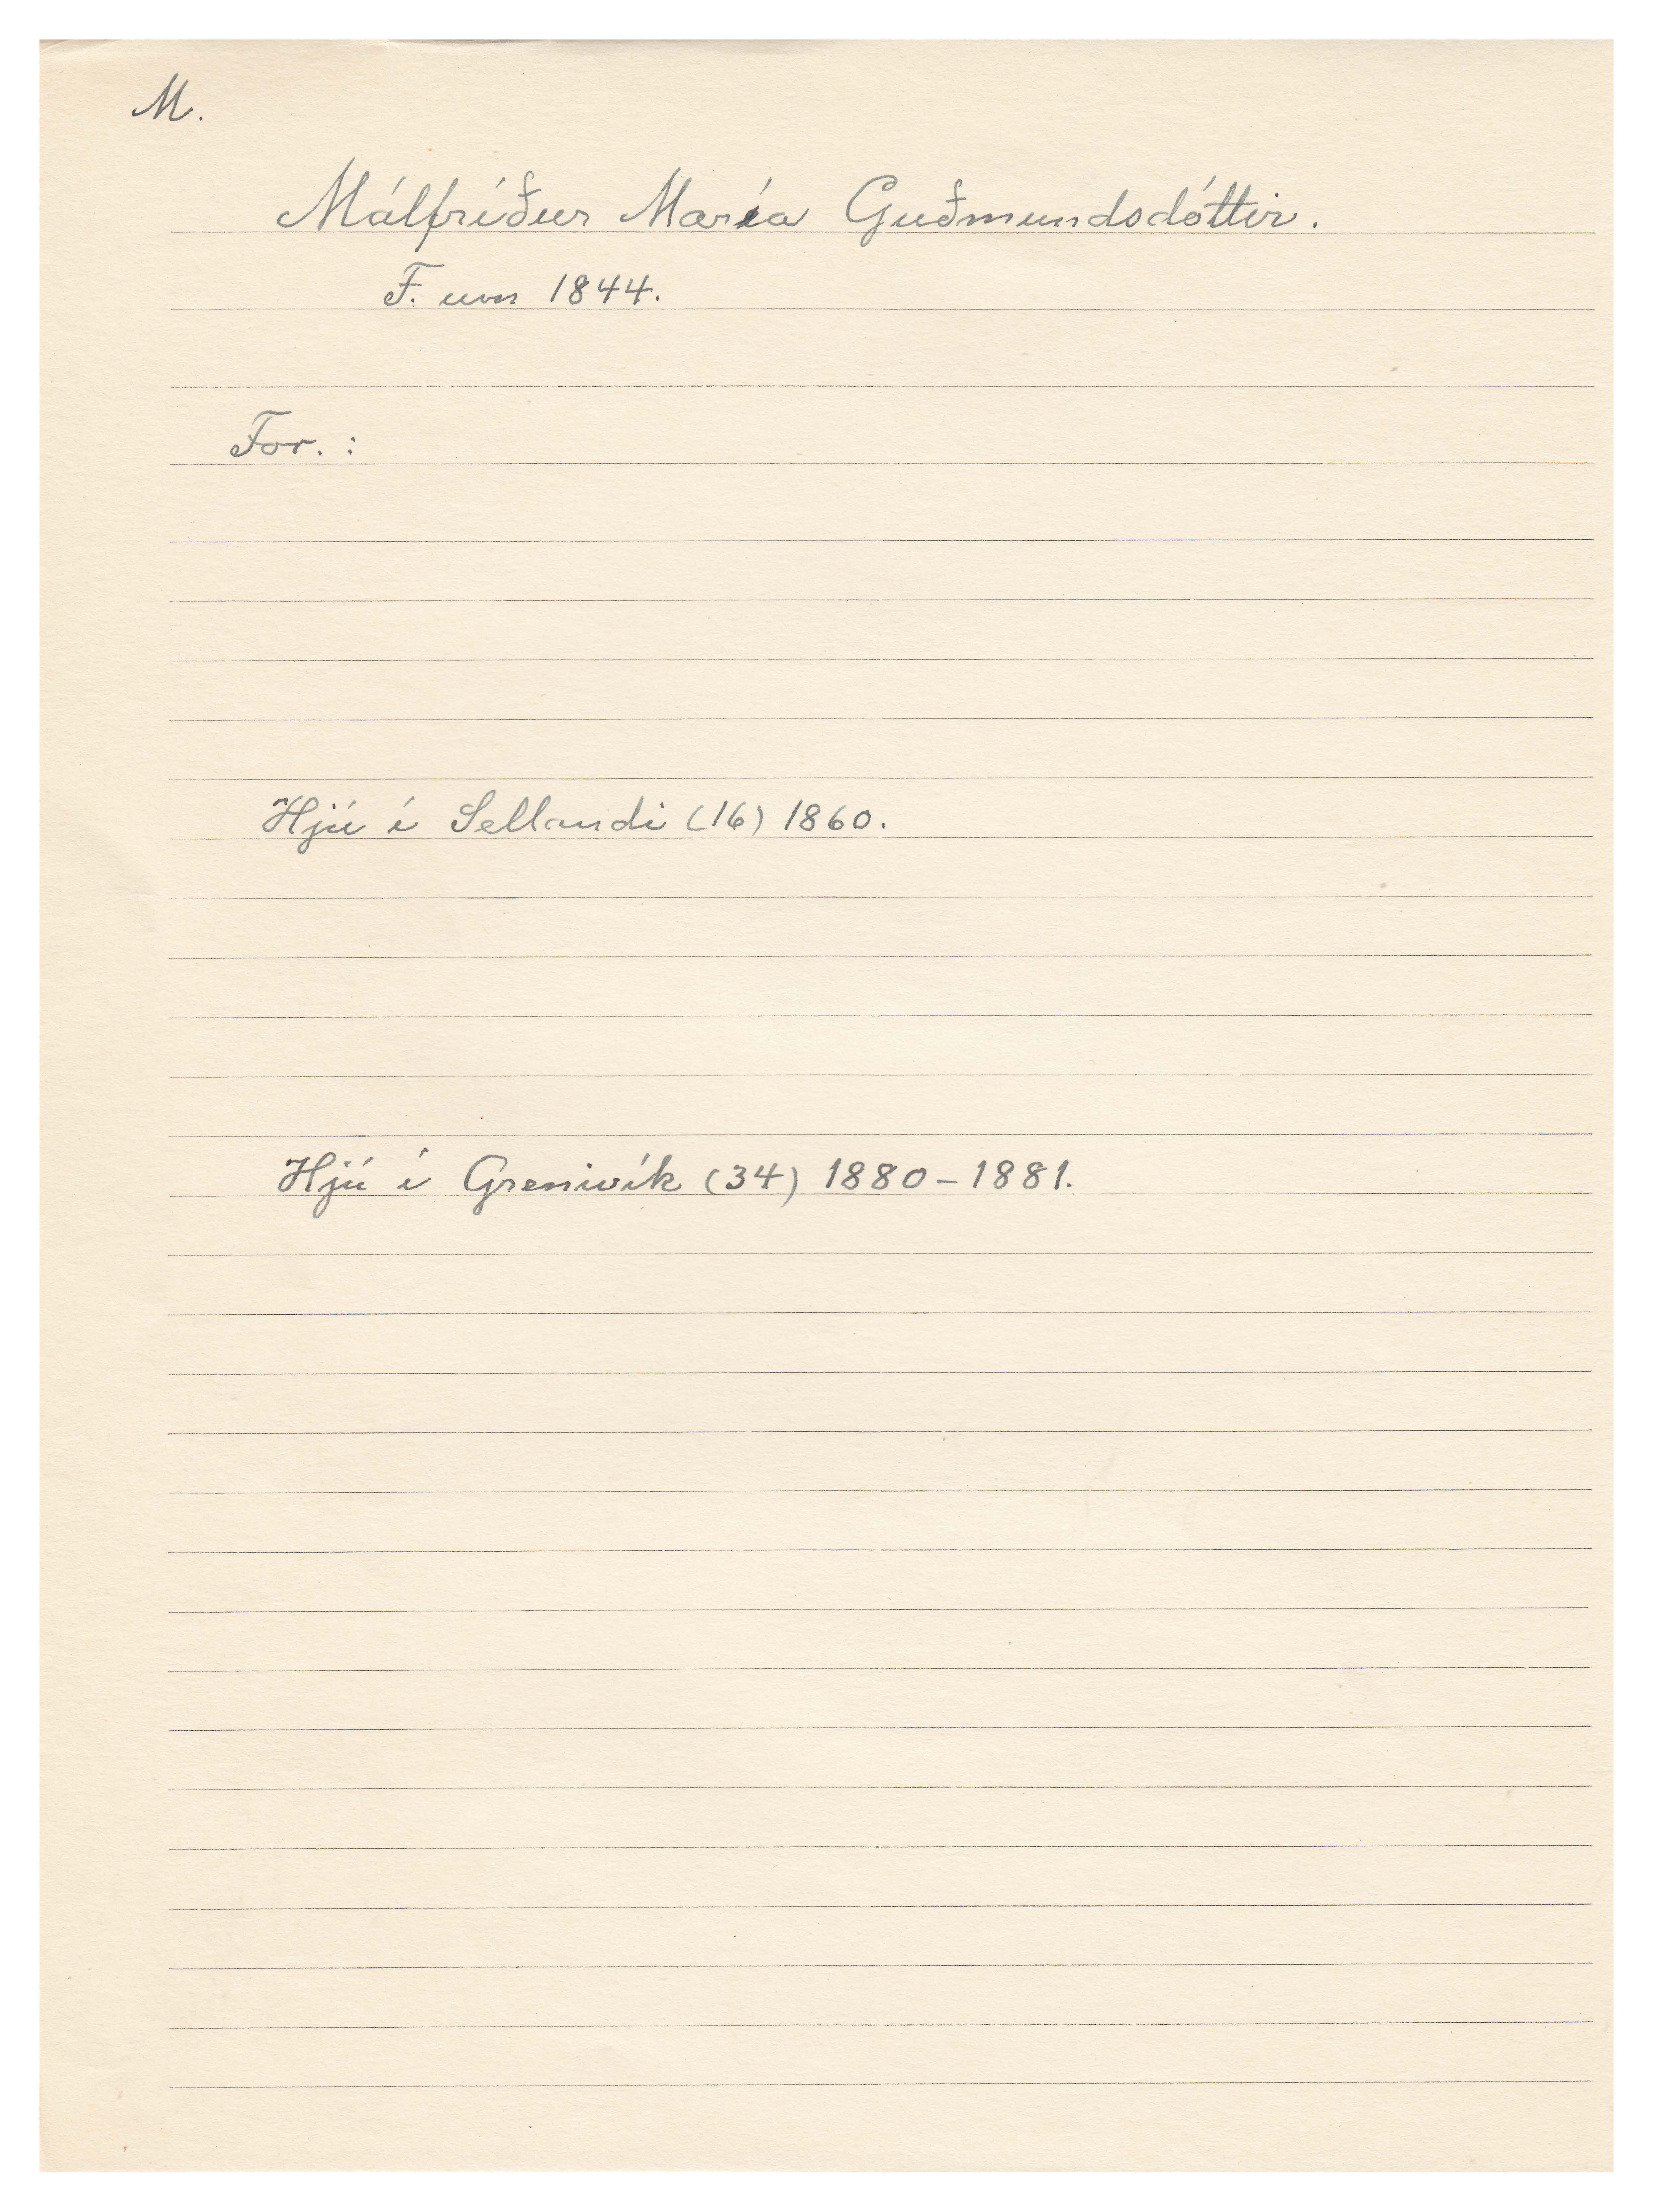 M.
Málfríður María Guðmundsdóttir.
F. um 1844.
For. :
Hjú í Sellandi (16) 1860.
Hjú í Grenivík (34) 1880-1881.